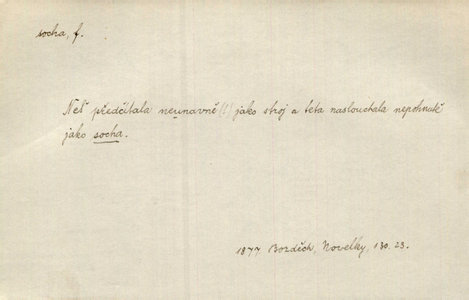 socha, f.
Než předčítala neunavně (!) jako stroj a teta naslouchala nepohnutě
jako socha.
1877 Bozděch, Novelky, 130. 23.